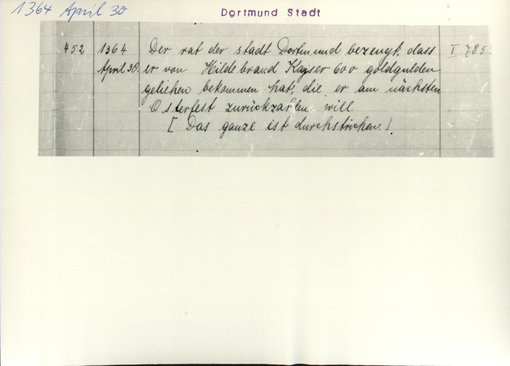 1364 April 30
Dortmund Stadt
452 1364 Der rat der stadt Dortmund bezeugt, dass I 785.
April 30. er von Hildebrand Kayser 600 goldgulden
geliehen bekommen hat, die er am nächsten
Osterfest zurückzahlen will.
[Das ganze ist durchstrichen.]